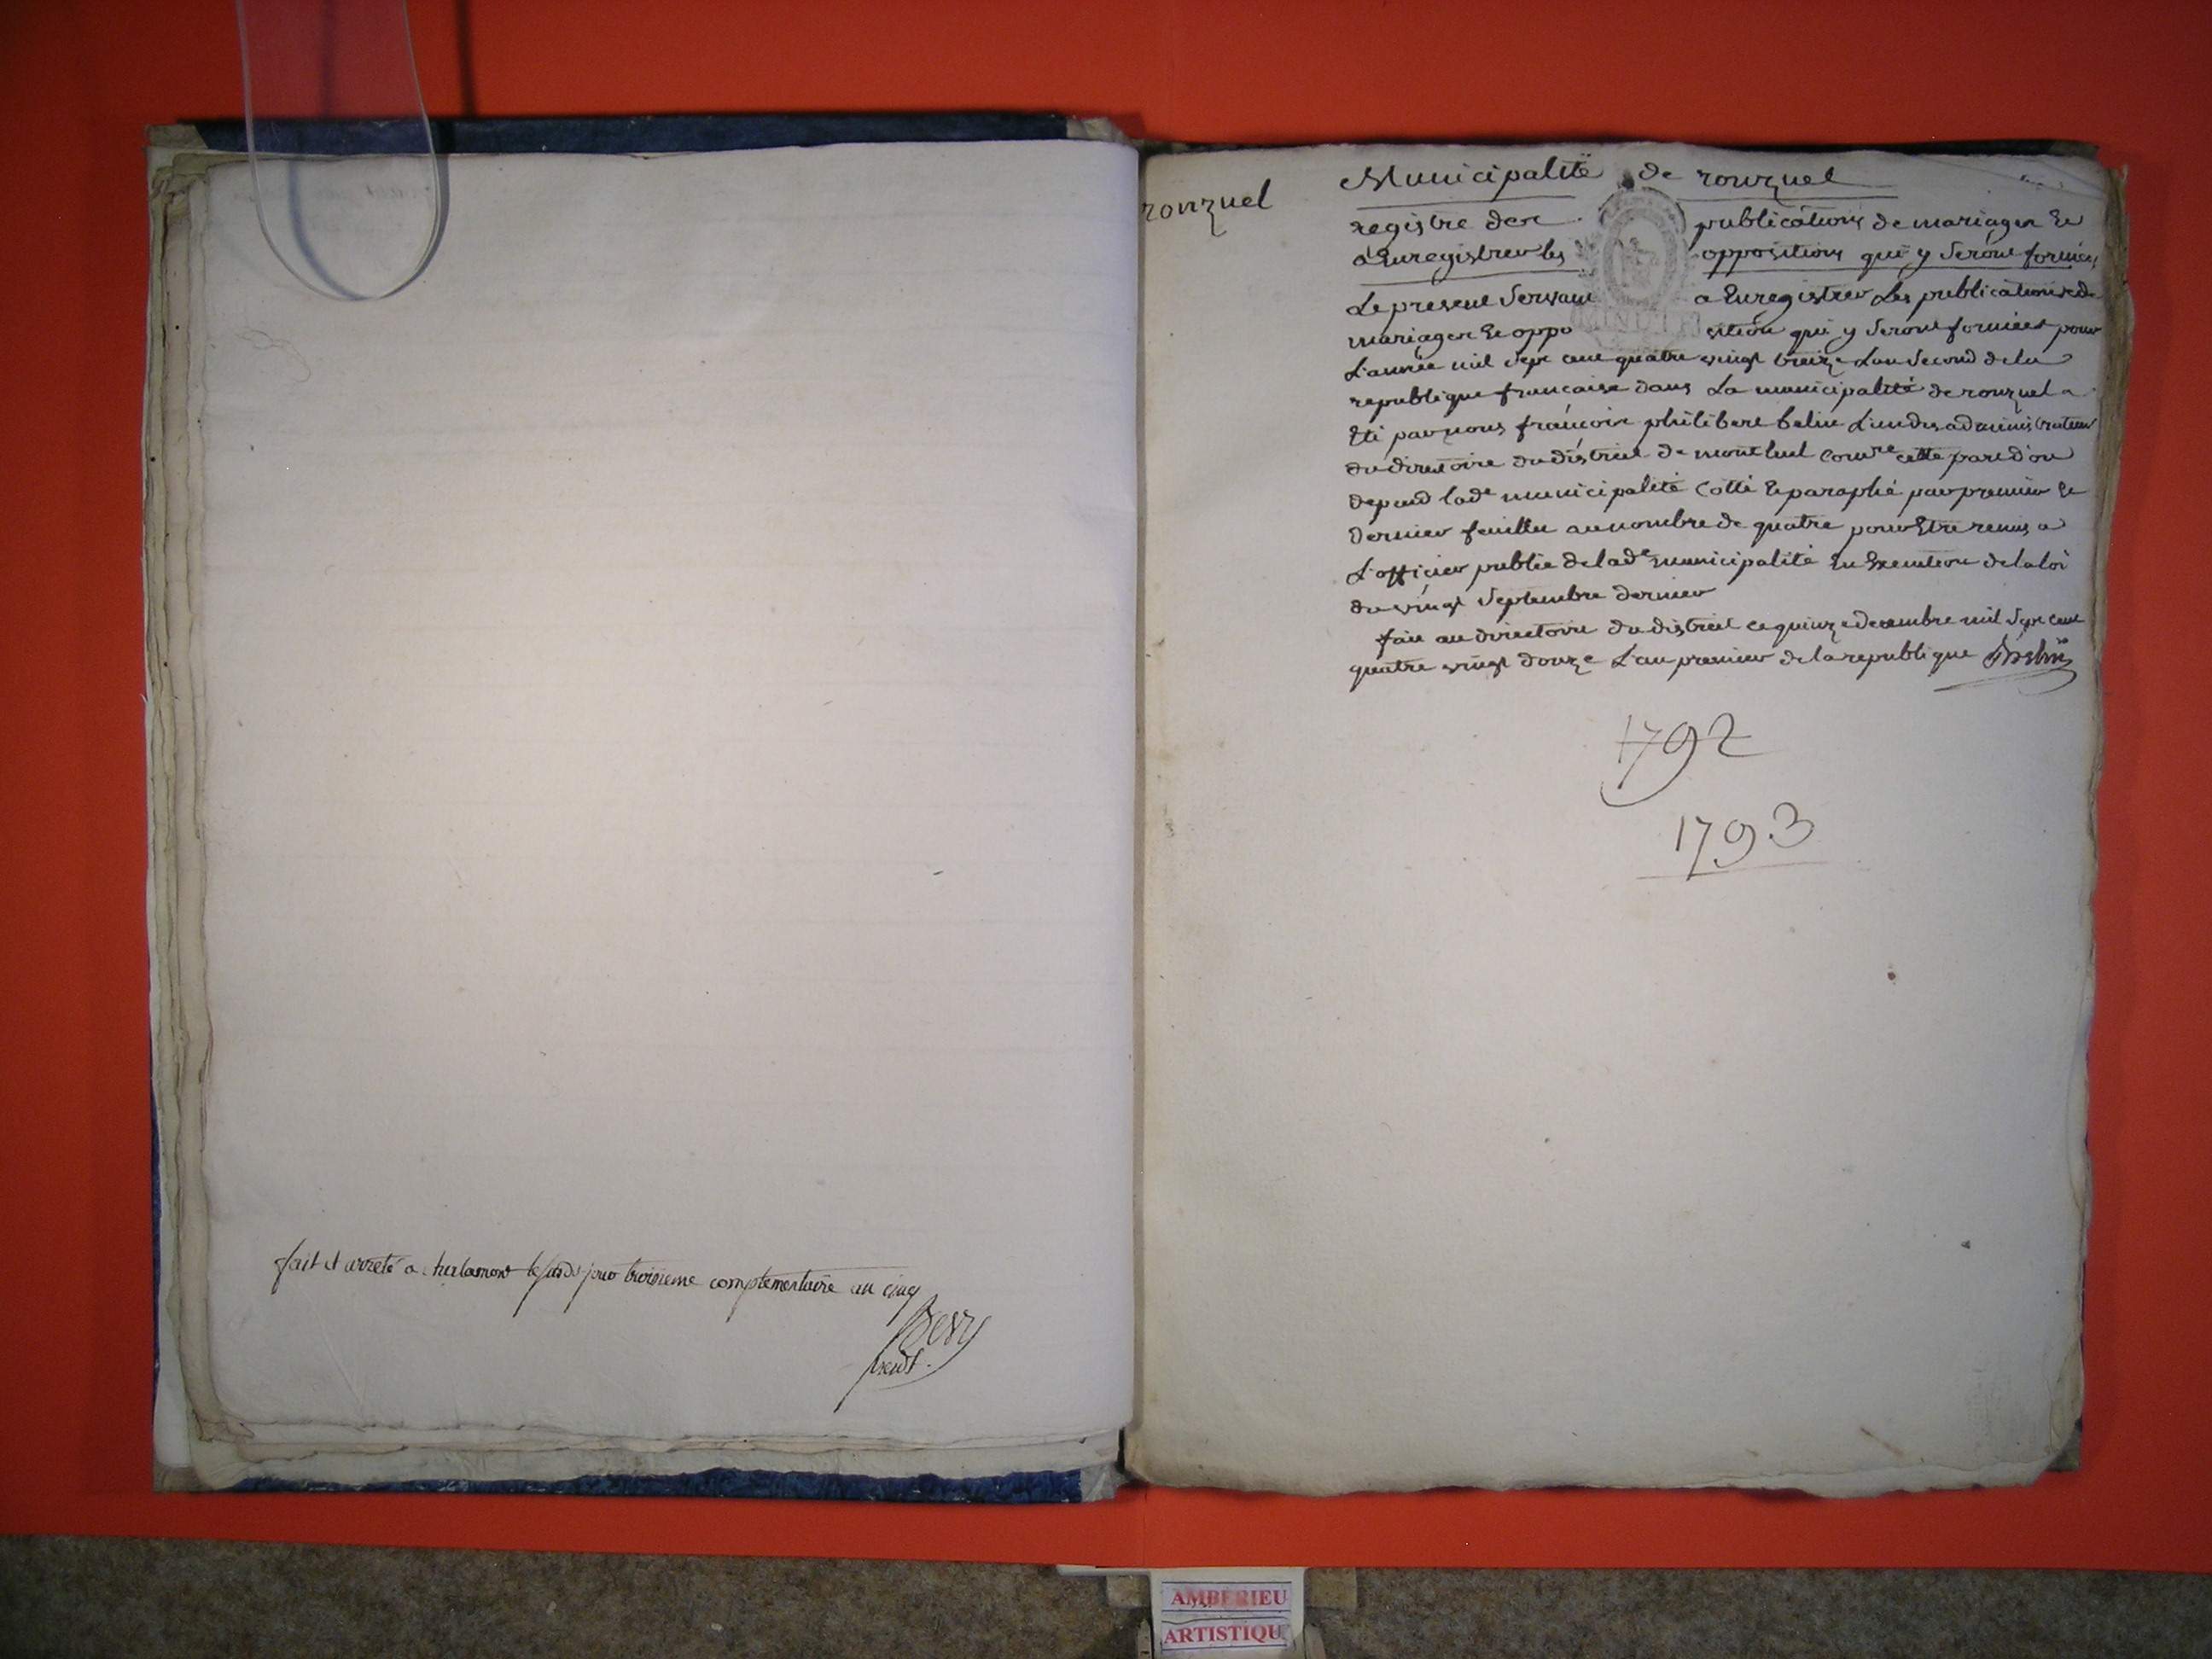 fait et arreté a chalamont le jour troisieme complementaire an cinq
ronzuel
Municipalité de ronzuel
registre des publications de mariages et
a Enregistrer les oppositions qui y seront formées
Le present servant a Enregistrer Les publications de
mariages et opposition qui y seront formées pour
L'année mil sept cent quatre vingt treize L'an second de la
republique francaise dans La municipalité de ronzuel a
Eté par nous francois philibert belin L'un des administrateurs
du directoire du district de montluel cette part d'ou
depend lade municipalité Cotté et paraphé par premier et
dernier feuillet au nombre de quatre pour Etre remis a
L'officier public de lade municipalité En Execution de la loi
du vingt Septembre dernier
fait au directoire du district ce quinze decembre mil sept cent
quatre vingt douze L'an premier de la republique Belin
1792
1793
AMBERIEU
ARTISTIQU